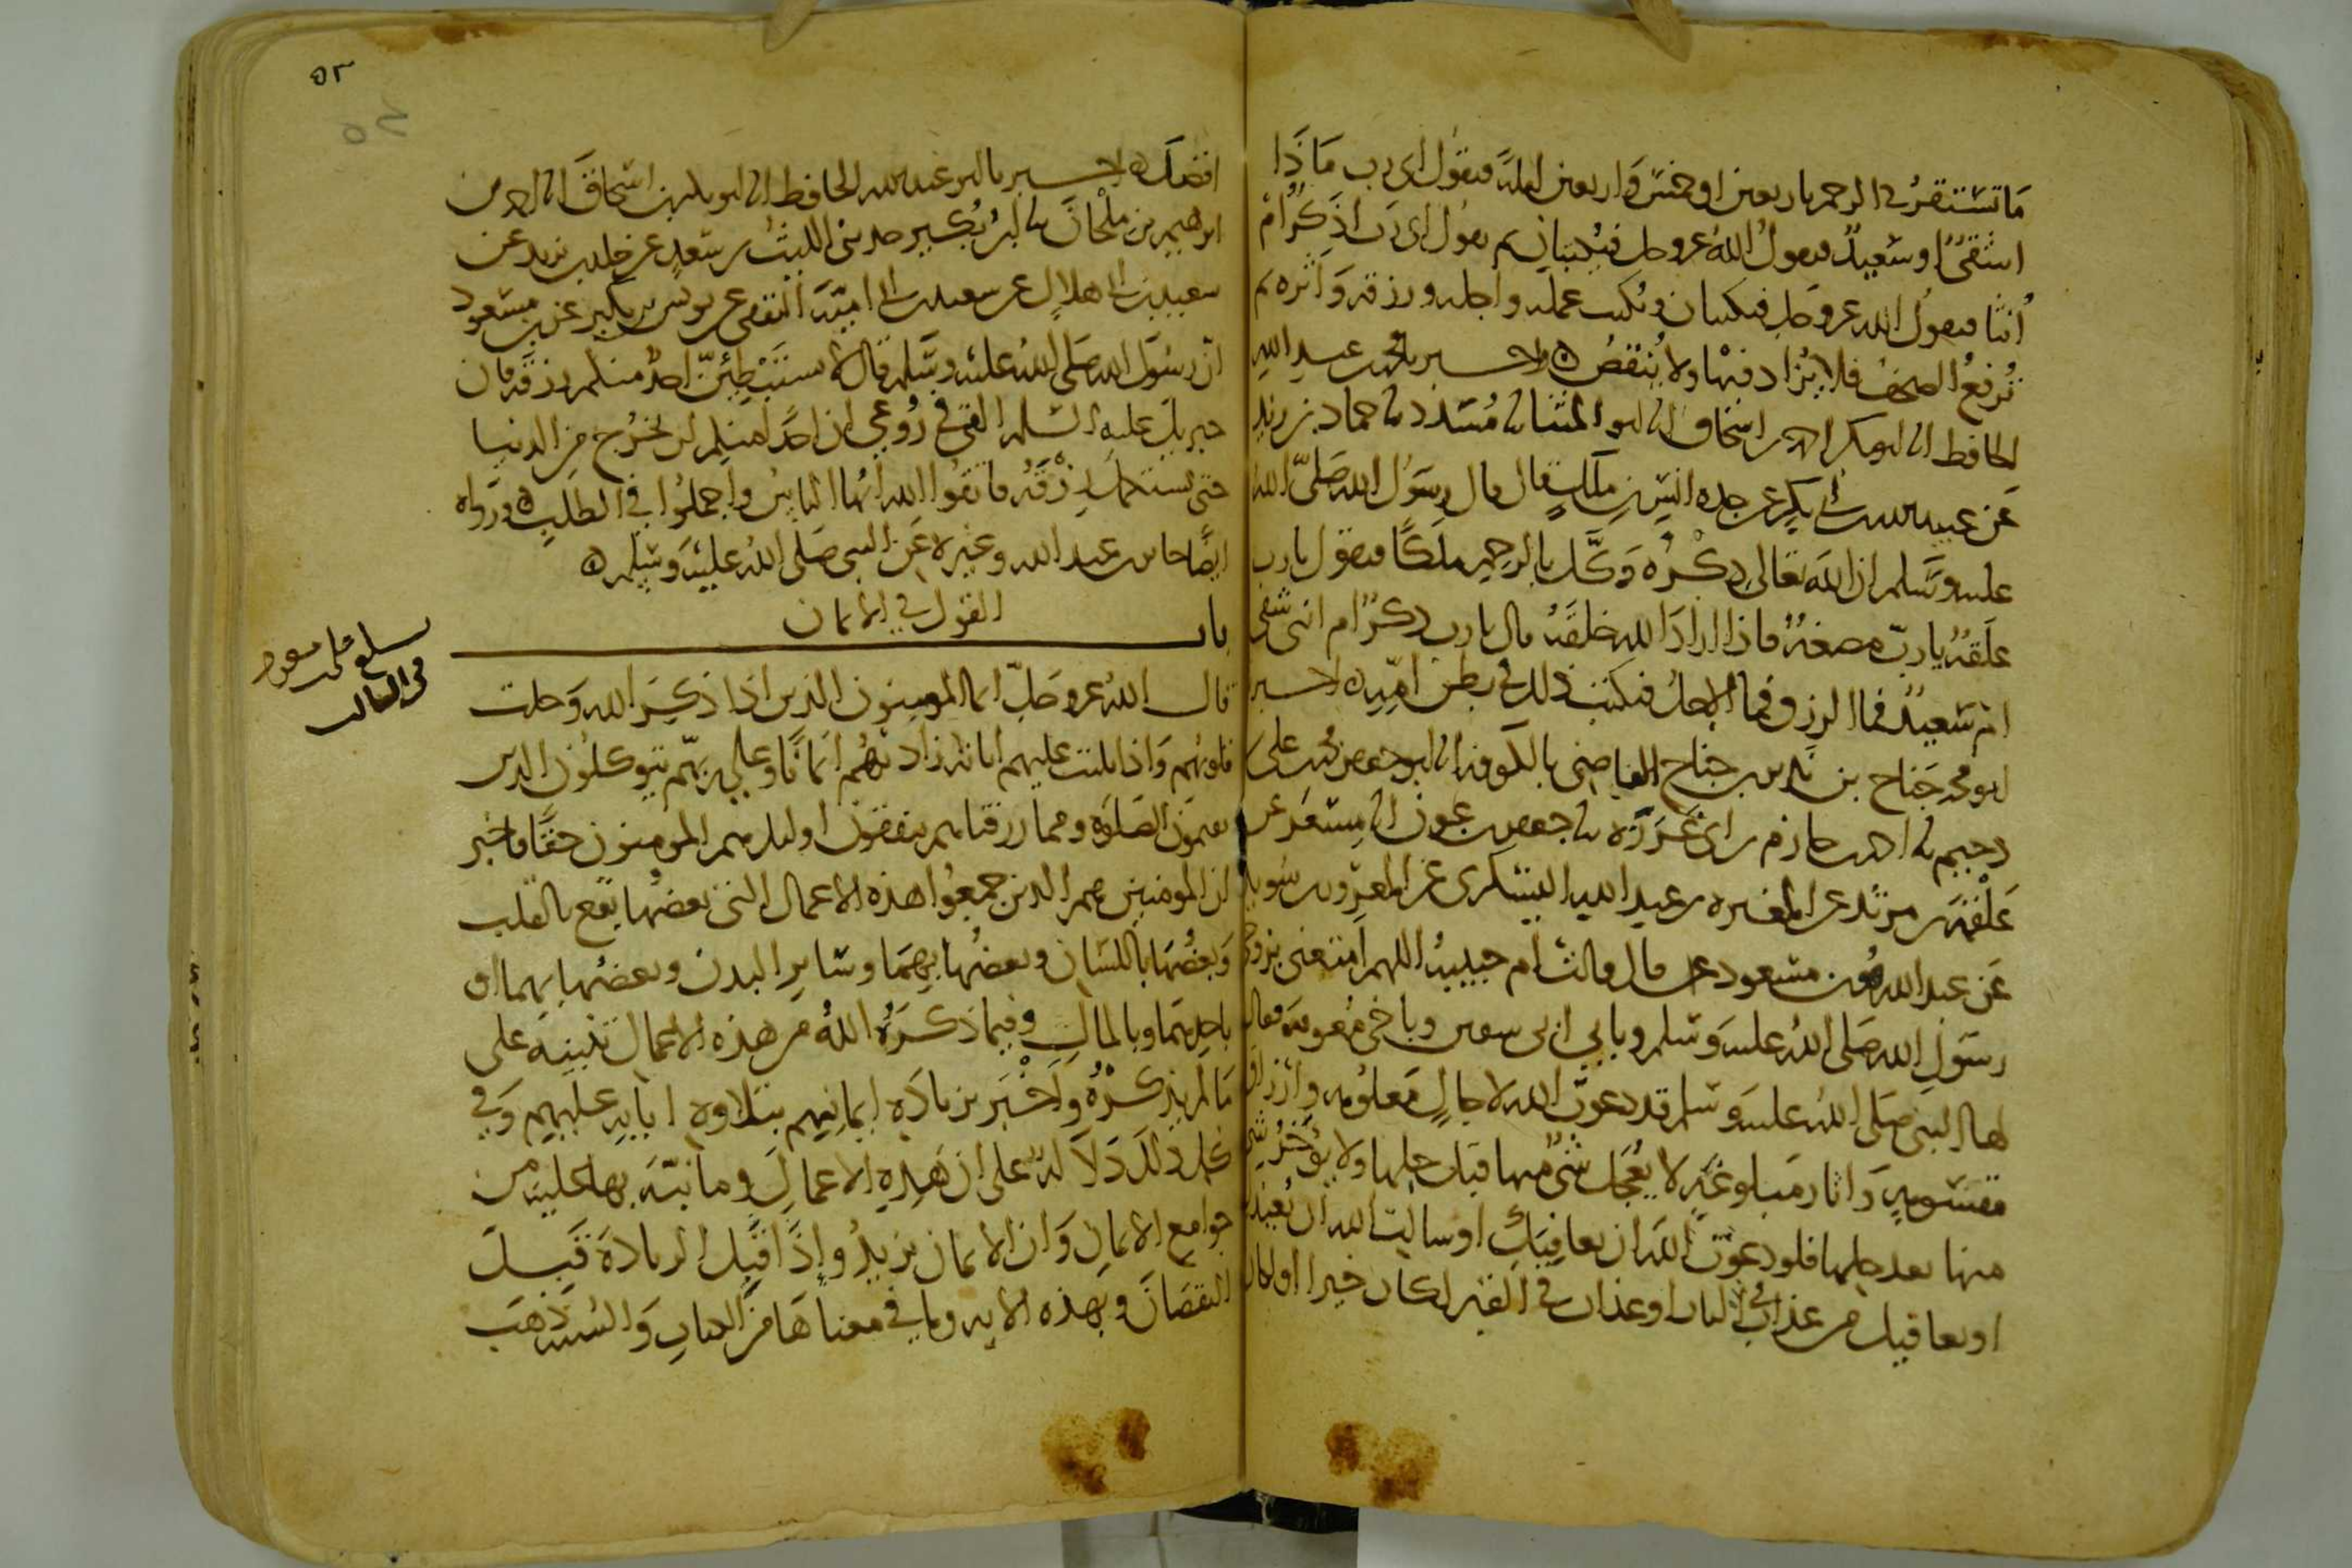 ما تستقر في الرحم باربعين او خمس واربعين ليلة فيقول اي رب ماذا
اشقي او سعيد فيقول الله عز وجل فيكتبان ثم يقول اي رب اذكر ام
انثا فيقول الله عز وجل فيكتبان ويكتب عمله واجله ورزقه واثره ثم
ترفع الصحف فلا يزاد فيها ولا ينقص ه واخبرنا محمد بن عبد الله
الحافظ انا ابو بكر احمد بن اسحاق انا ابو المثنا نا مسدد نا حماد بن زيد
عن عبيد الله بن ابي بكر عن جده انس بن ملك قال قال رسول الله صلى الله
عليه وسلم ان الله تعالى ذكره وكل بالرحم ملكا فيقول يا رب
علقة يا رب مضغة فاذا اراد الله خلقه قال يا رب ذكر ام انثى شقي
ام سعيد فما الرزق فما الاجل فيكتب ذلك في بطن امه ه اخبرنا
ابو محمد جناح بن نذير بن جناح القاضي بالكوفة انا ابو جعفر محمد بن علي بن
دحيم نا احمد بن حازم بن ابي غرزة نا جعفر بن عون انا مسعر عن
علقمة بن مرثد عن المغيرة بن عبد الله اليشكري عن المعرور بن سويد
عن عبد الله هو بن مسعود قال قالت ام حبيبة اللهم امتعني بزوجي
رسول الله صلى الله عليه وسلم وبابي ابي سفين وباخي معوية فقال
لها النبي صلى الله عليه وسلم قد دعوت الله لاجال معلومة وارزاق
مقسومة واثار مبلوغة لا يعجل شي منها قبل حلها ولا يؤخر شي
منها بعد حلها فلو دعوت الله ان يعافيك او سالت الله ان يعيذك
او يعافيك من عذاب في النار او عذاب في القبر لكان خيرا او لكان
٥٢
افضل ه اخبرنا ابو عبد الله الحافظ انا ابو بكر بن اسحاق انا احمد بن
ابرهيم بن ملحان نا ابن بكير حدثني الليث بن سعد عن خلد بن يزيد عن
سعيد بن ابي هلال عن سعيد بن ابي امية الثقفي عن يونس بن بكير عن بن مسعود
ان رسول الله صلى الله عليه وسلم قال لا يستبطئن احد منكم رزقه فان
جبريل عليه السلم القى في روعي ان احدا منكم لن يخرج من الدنيا
حتى يستكمل رزقه فاتقوا الله ايها الناس واجملوا في الطلب ه ورواه
ايضا جابر بن عبد الله وغيره عن النبي صلى الله عليه وسلم ه
باب القول في الايمان
قال الله عز وجل انما المومنون الذين اذا ذكر الله وجلت
قلوبهم واذا تليت عليهم اياته زادتهم ايمانا وعلى ربهم يتوكلون الذين
يقيمون الصلوة ومما رزقناهم ينفقون اوليك هم المومنون حقا فاخبر
ان المومنين هم الذين جمعوا هذه الاعمال التي بعضها يقع بالقلب
وبعضها باللسان وبعضها بهما وسائر البدن وبعضها بهما او
باحدهما وبالمال وفيما ذكره الله من هذه الاعمال تنبيه على
ما لم يذكره واخبر بزيادة ايمانهم بتلاوة اياته عليهم وفي
كل ذلك دلالة على ان هذه الاعمال وما نبه بها عليه من
جوامع الايمان وان الايمان يزيد واذا قبل الزيادة قبل
النقصان وبهذه الاية وما في معناها من الكتاب والسنة ذهب